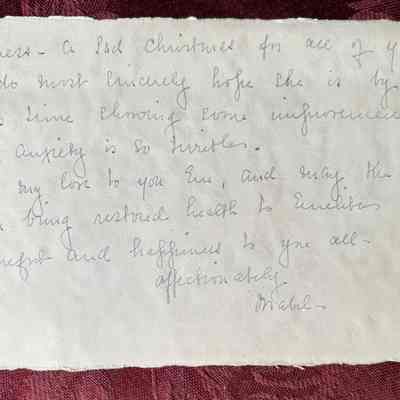 ness - a sad Christmas for all of y
do most sincerely hope she is by
time showing some improvemen
anxiety is so terrible.
my love to you Em, and may the
bring restored health to
and happiness to you all -
affectionately
Mabel -